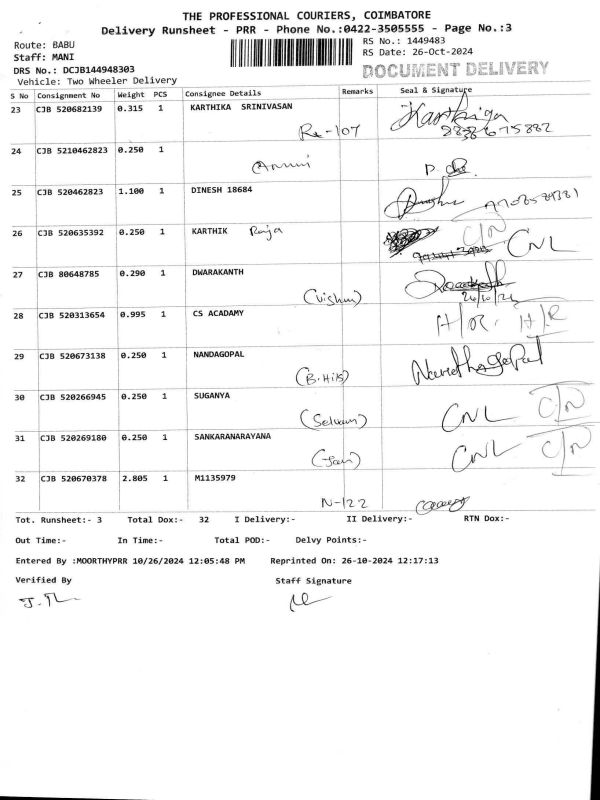 THE PROFESSIONAL COURIERS, COIMBATORE
Delivery Runsheet - PRR - Phone No.:0422-3505555 - Page No.:3
Route: BABU
RS No.: 1449483
Staff: MANI
RS Date: 26-Oct-2024
DRS No.: DCJB144948303
DOCUMENT DELIVERY
Vehicle: Two Wheeler Delivery
S No Consignment No Weight PCS Consignee Details Remarks Seal & Signature
23 CJB 520682139 0.315 1 KARTHIKA SRINIVASAN
24 CJB 5210462823 0.250 1
25 CJB 520462823 1.100 1 DINESH 18684
26 CJB 520635392 0.250 1 KARTHIK Raja C/N CNL
27 CJB 80648785 0.290 1 DWARAKANTH
(Vishnu) 26/10/24
28 CJB 520313654 0.995 1 CS ACADAMY
29 CJB 520673138 0.250 1 NANDAGOPAL Nandhagopal
(B.Hills)
30 CJB 520266945 0.250 1 SUGANYA
(Selvam) CNL C/N
31 CJB 520269180 0.250 1 SANKARANARAYANA
CNL C/N
32 CJB 520670378 2.805 1 M1135979
N-122
Tot. Runsheet:- 3 Total Dox:- 32 I Delivery:- II Delivery:- RTN Dox:-
Out Time:- In Time:- Total POD:- Delvy Points:-
Entered By :MOORTHYPRR 10/26/2024 12:05:48 PM Reprinted On: 26-10-2024 12:17:13
Verified By Staff Signature